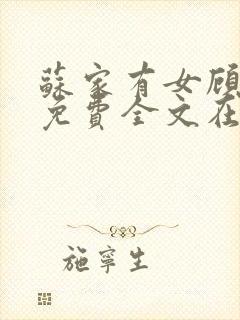 蘇家有女顾
免費全文在
施寧生